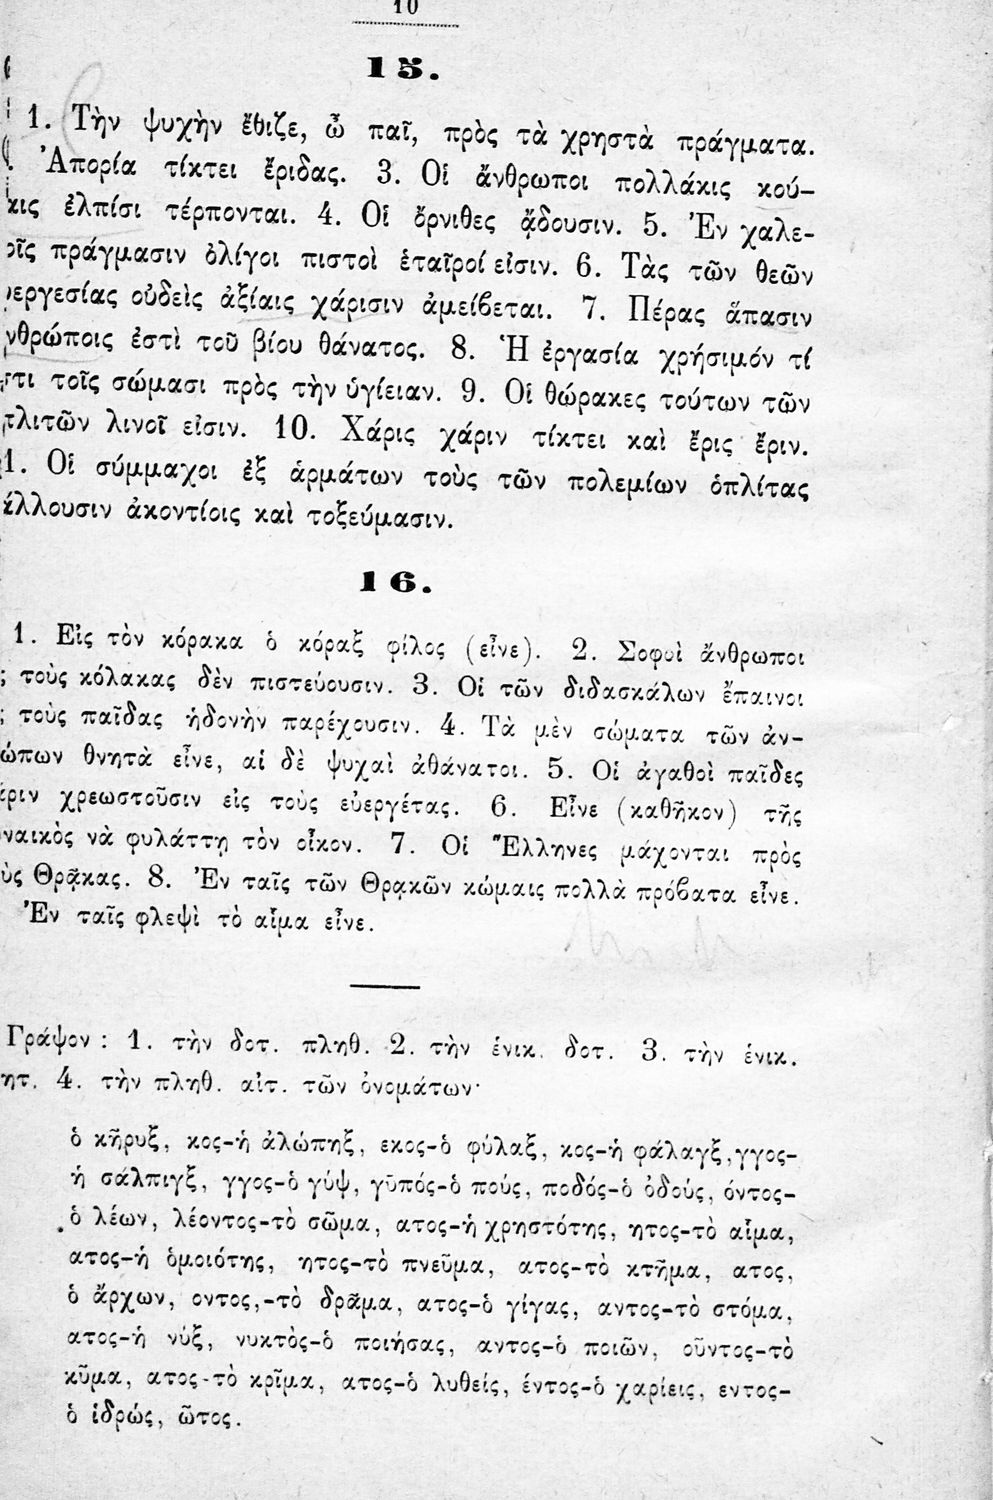 10
15.
1. Τὴν ψυχὴν ἔθιζε, ὦ παῖ, πρὸς τὰ χρηστὰ πράγματα.
Ἀπορία τίκτει ἔριδας. 3. Οἱ ἄνθρωποι πολλάκις κού-
κις ἐλπίσι τέρπονται. 4. Οἱ ὄρνιθες ᾄδουσιν. 5. Ἐν χαλε-
οῖς πράγμασιν ὀλίγοι πιστοὶ ἑταῖροί εἰσιν. 6. Τὰς τῶν θεῶν
εργεσίας οὐδεὶς ἀξίαις χάρισιν ἀμείβεται. 7. Πέρας ἅπασιν
νθρώποις ἐστὶ τοῦ βίου θάνατος. 8. Ἡ ἐργασία χρήσιμόν τί
στι τοῖς σώμασι πρὸς τὴν ὑγίειαν. 9. Οἱ θώρακες τούτων τῶν
πλιτῶν λινοῖ εἰσιν. 10. Χάρις χάριν τίκτει καὶ ἔρις ἔριν.
1. Οἱ σύμμαχοι ἐξ ἁρμάτων τοὺς τῶν πολεμίων ὁπλίτας
άλλουσιν ἀκοντίοις καὶ τοξεύμασιν.
16.
1. Εἰς τὸν κόρακα ὁ κόραξ φίλος (εἶνε). 2. Σοφοὶ ἄνθρωποι
ς τοὺς κόλακας δὲν πιστεύουσιν. 3. Οἱ τῶν διδασκάλων ἔπαινοι
ς τοὺς παῖδας ἡδονὴν παρέχουσιν. 4. Τὰ μὲν σώματα τῶν ἀν-
ώπων θνητὰ εἶνε, αἱ δὲ ψυχαὶ ἀθάνατοι. 5. Οἱ ἀγαθοὶ παῖδες
άριν χρεωστοῦσιν εἰς τοὺς εὐεργέτας. 6. Εἶνε (καθῆκον) τῆς
ναικὸς νὰ φυλάττῃ τὸν οἶκον. 7. Οἱ Ἕλληνες μάχονται πρὸς
ὺς Θρᾷκας. 8. Ἐν ταῖς τῶν Θρᾳκῶν κώμαις πολλὰ πρόβατα εἶνε.
Ἐν ταῖς φλεψὶ τὸ αἷμα εἶνε.
Γράψον : 1. τὴν δοτ. πληθ. 2. τὴν ἑνικ. δοτ. 3. τὴν ἑνικ.
ητ. 4. τὴν πληθ. αἰτ. τῶν ὀνομάτων·
ὁ κῆρυξ, κος-ἡ ἀλώπηξ, εκος-ὁ φύλαξ, κος-ἡ φάλαγξ,γγος-
ἡ σάλπιγξ, γγος-ὁ γύψ, γῦπός-ὁ πούς, ποδός-ὁ ὀδούς, όντος-
ὁ λέων, λέοντος-τὸ σῶμα, ατος-ἡ χρηστότης, ητος-τὸ αἷμα,
ατος-ἡ ὁμοιότης, ητος-τὸ πνεῦμα, ατος-τὸ κτῆμα, ατος,
ὁ ἄρχων, οντος,-τὸ δρᾶμα, ατος-ὁ γίγας, αντος-τὸ στόμα,
ατος-ἡ νύξ, νυκτὸς-ὁ ποιήσας, αντος-ὁ ποιῶν, οῦντος-τὸ
κῦμα, ατος-τὸ κρῖμα, ατος-ὁ λυθείς, έντος-ὁ χαρίεις, εντος-
ὁ ἱδρώς, ῶτος.